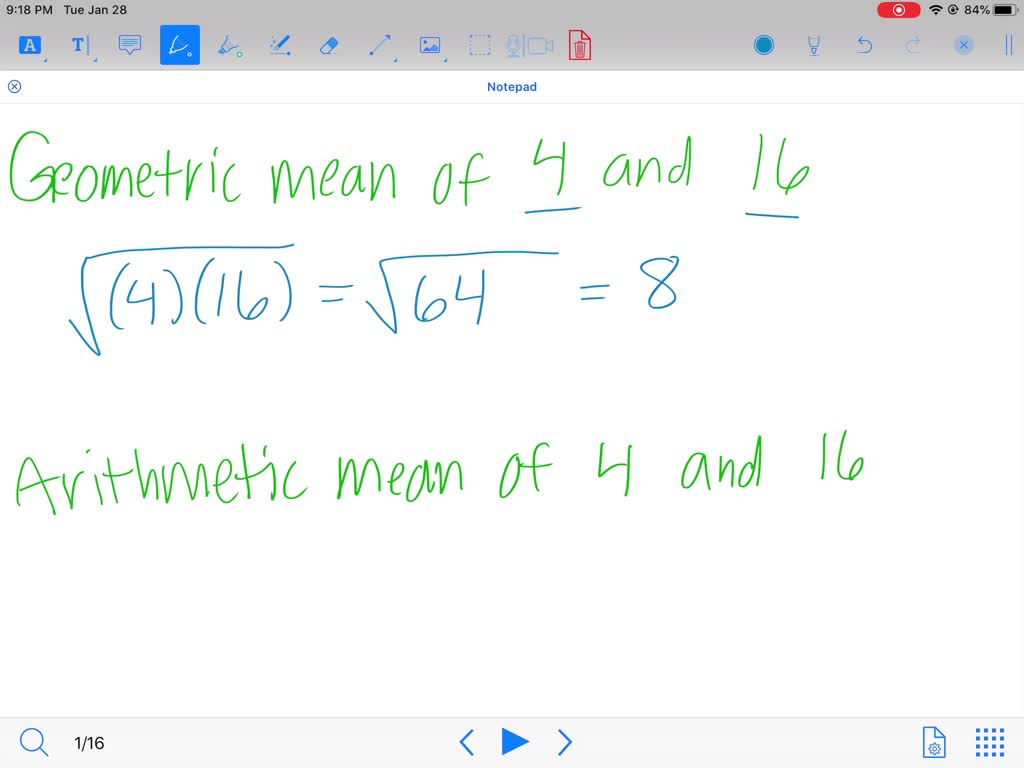 9:18 PM Tue Jan 28 84%
A T
Notepad
Geometric mean of 4 and 16
√(4)(16) = √64 = 8
Arithmetic mean of 4 and 16
1/16